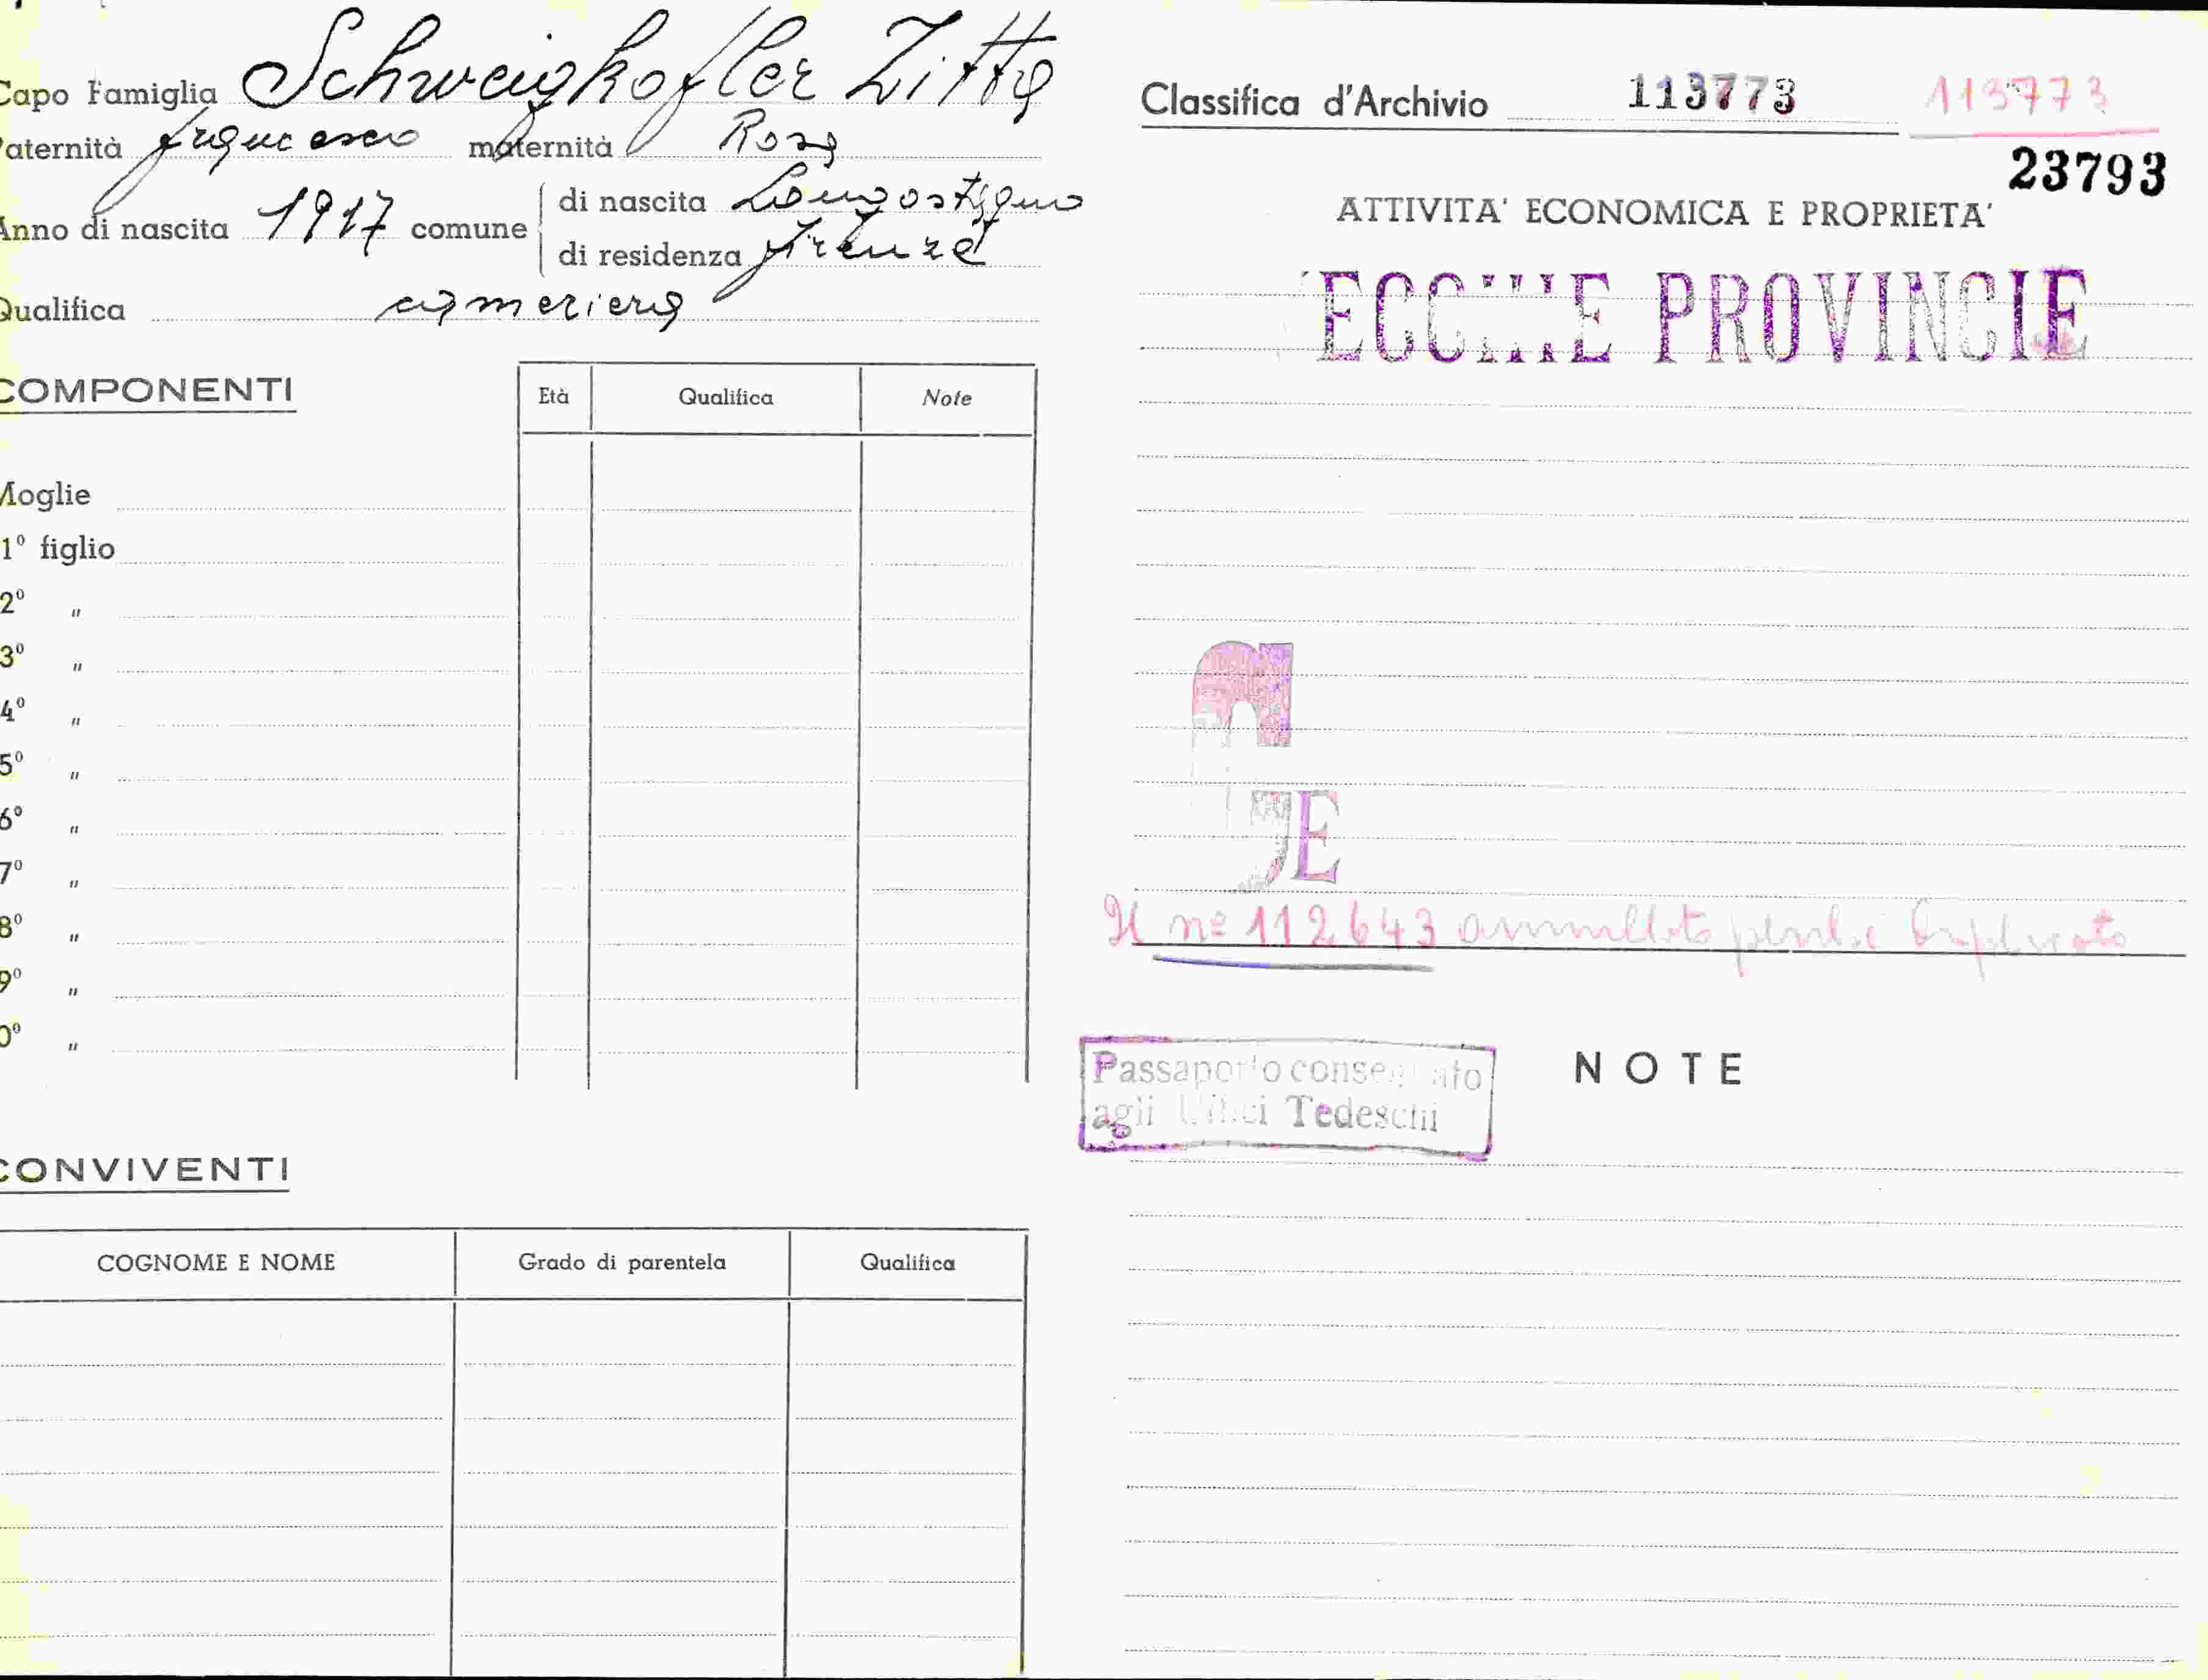 Capo Famiglia Schweighofler Zitta
Paternità francesco maternità Rosa
Anno di nascita 1917 comune
di nascita Longostagno
di residenza firenze
Qualifica cameriera
COMPONENTI
Età Qualifica Note
Moglie
1º figlio
2º "
3º "
4º "
5º "
6º "
7º "
8º "
9º "
0º "
CONVIVENTI
COGNOME E NOME Grado di parentela Qualifica
Classifica d'Archivio 113773 113773
23793
ATTIVITA' ECONOMICA E PROPRIETA'
PROVINCIE
E
Il nº 112643 annullato perchè duplicato
Passaporto consegnato
agli Uffici Tedeschi
NOTE